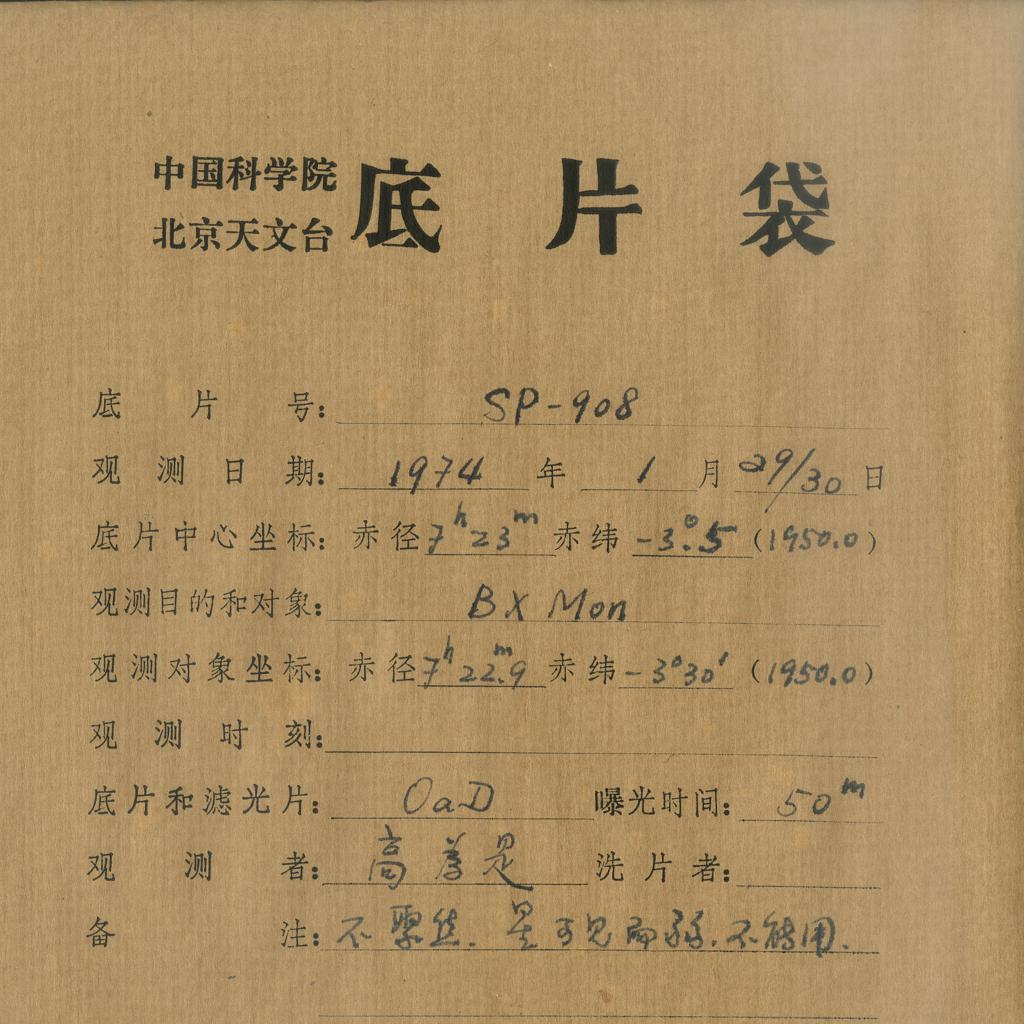 中国科学院
北京天文台
底片袋
底片号: SP-908
观测日期: 1974 年 1 月 29/30 日
底片中心坐标: 赤径 7h23m 赤纬 -3°.5 (1950.0)
观测目的和对象: BX Mon
观测对象坐标: 赤径 7h22m.9 赤纬 -3°30′ (1950.0)
观测时刻:
底片和滤光片: OaD 曝光时间: 50m
观测者: 高 是 洗片者:
备注: 不聚焦. 星可见 弱. 不能用.